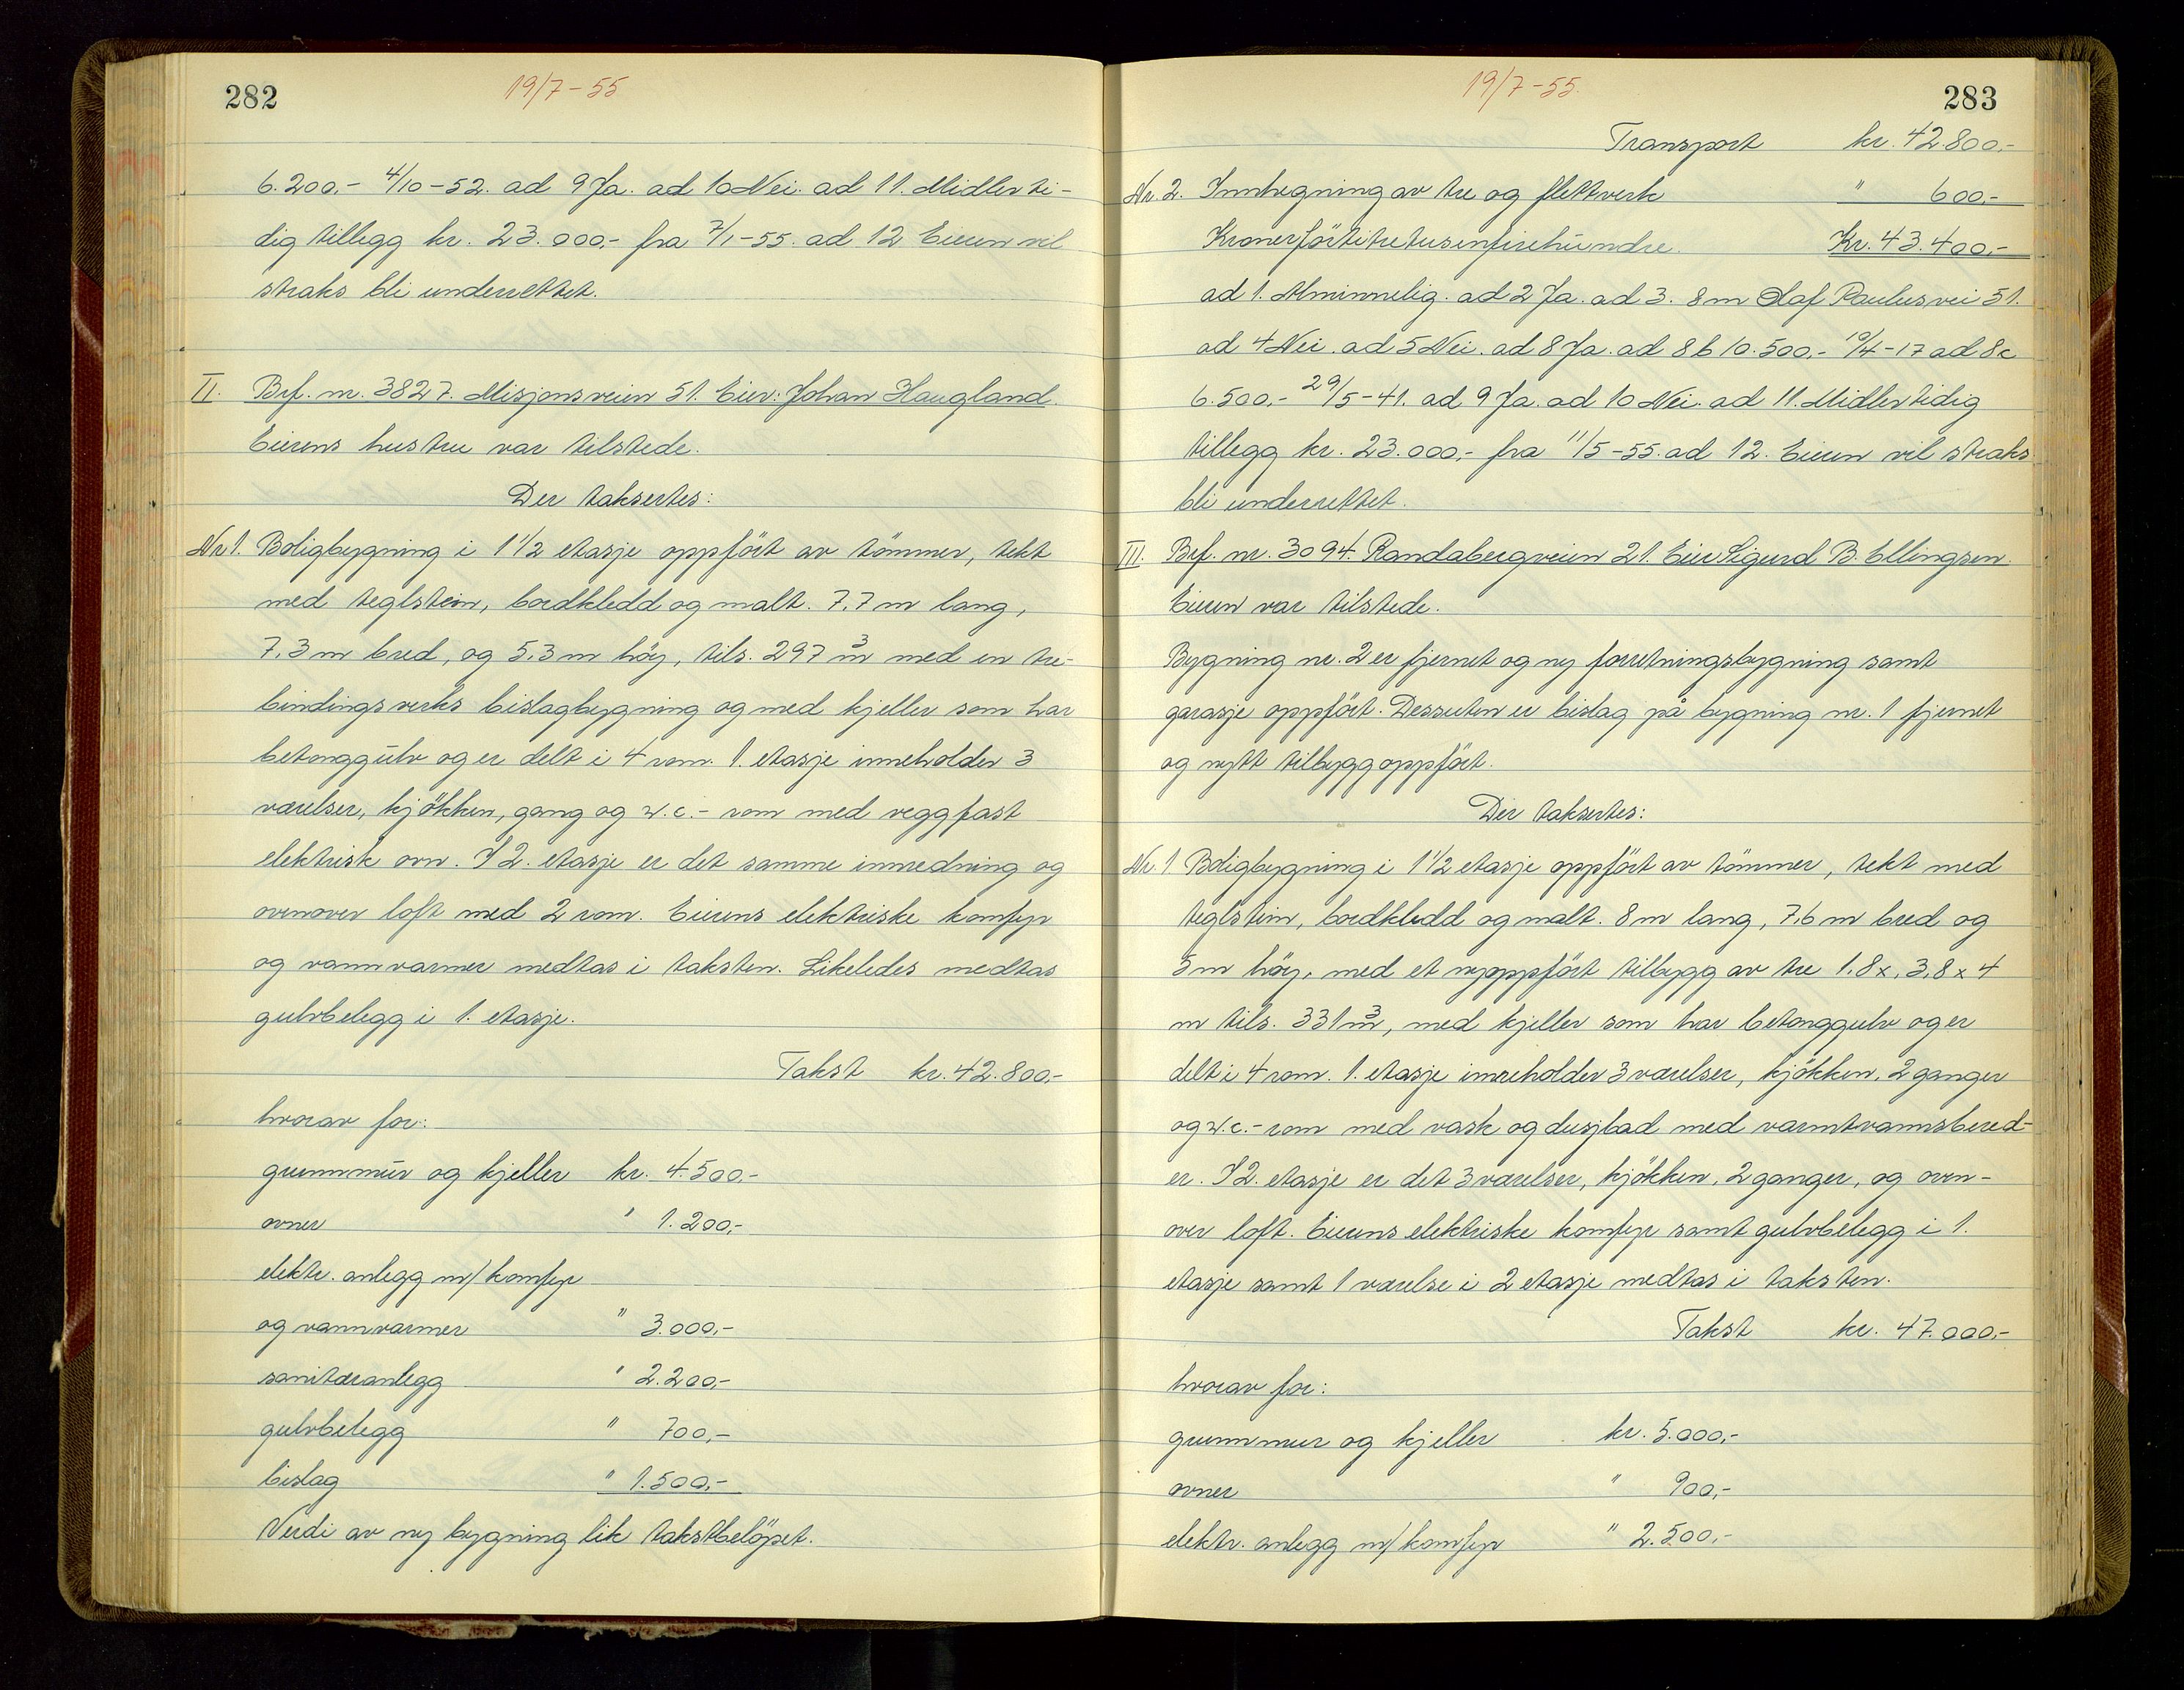 282
19/7-55
6.200,- 4/10-52. ad 9 Ja. ad 10 Nei. ad 11. Midlerti-
dig tillegg kr. 23.000,- fra 7/1-55. ad 12 Eieren vil
straks bli underrettet.
II. Brf. nr. 3827. Misjonsveien 51. Eier: Johan Haugland.
Eierens hustru var tilstede.
Der taksertes:
Nr 1. Boligbygning i 1 1/2 etasje oppført av tömmer, tekt
med teglstein, bordkledd og malt. 7,7 m lang,
7,3 m bred, og 5,3 m höy, tils. 297 m3 med en tre-
bindingsverks bislagbygning og med kjeller som har
betonggulv og er delt i 4 rom. 1. etasje inneholder 3
værelser, kjökken, gang og w.c.- rom med veggfast
elektrisk ovn. I 2. etasje er det samme innredning og
ovenover loft med 2 rom. Eierens elektriske komfyr
og vannvarmer medtas i taksten. Likeledes medtas
gulvbelegg i 1. etasje.
Takst kr. 42.800,-
hvorav for:
grunnmur og kjeller kr. 4.500,-
ovner " 1.200,-
elektr. anlegg m/komfyr
og vannvarmer " 3.000,-
sanitæranlegg " 2.200,-
gulvbelegg " 700,-
bislag " 1.500,-
Verdi av ny bygning lik takstbelöpet.
19/7-55.
283
Transport kr. 42.800,-
Nr. 2. Innhegning av tre og flettverk " 600,-
Kronerförtitretusenfirehundre. Kr. 43.400,-
ad 1. Alminnelig. ad 2 Ja. ad 3. 8 m Olaf Paulusvei 51.
ad 4 Nei. ad 5 Nei. ad 8 Ja. ad 8 b 10.500,- 10/4-17 ad 8c
6.500,- 29/5-41. ad 9 Ja. ad 10 Nei. ad 11. Midlertidig
tillegg kr. 23.000,- fra 11/5-55. ad 12. Eieren vil straks
bli underrettet.
III. Brf. nr. 3094. Randabergveien 21. Eier Sigurd B. Ellingsen.
Eieren var tilstede.
Bygning nr. 2 er fjernet og ny forretningsbygning samt
garasje oppfört. Dessuten er bislag på bygning nr. 1 fjernet
og nytt tilbygg oppfört.
Der taksertes:
Nr. 1 Boligbygning i 1 1/2 etasje oppfört av tömmer, tekt med
teglstein, bordkledd og malt. 8 m lang, 7,6 m bred og
5 m höy, med et nyoppfört tilbygg av tre 1,8 x 3,8 x 4
m tils. 331 m3, med kjeller som har betonggulv og er
delt i 4 rom. 1. etasje inneholder 3 værelser, kjökken, 2 ganger
og w.c.- rom med vask og dusjbad med varmtvannsbered-
er. I 2. etasje er det 3 værelser, kjökken, 2 ganger, og oven-
over loft. Eierens elektriske komfyr samt gulvbelegg i 1.
etasje samt 1 værelse i 2 etasje medtas i taksten.
Takst kr. 47.000,-
hvorav for:
grunnmur og kjeller kr. 5.000,-
ovner " 900,-
elektr. anlegg m/komfyr " 2.500,-